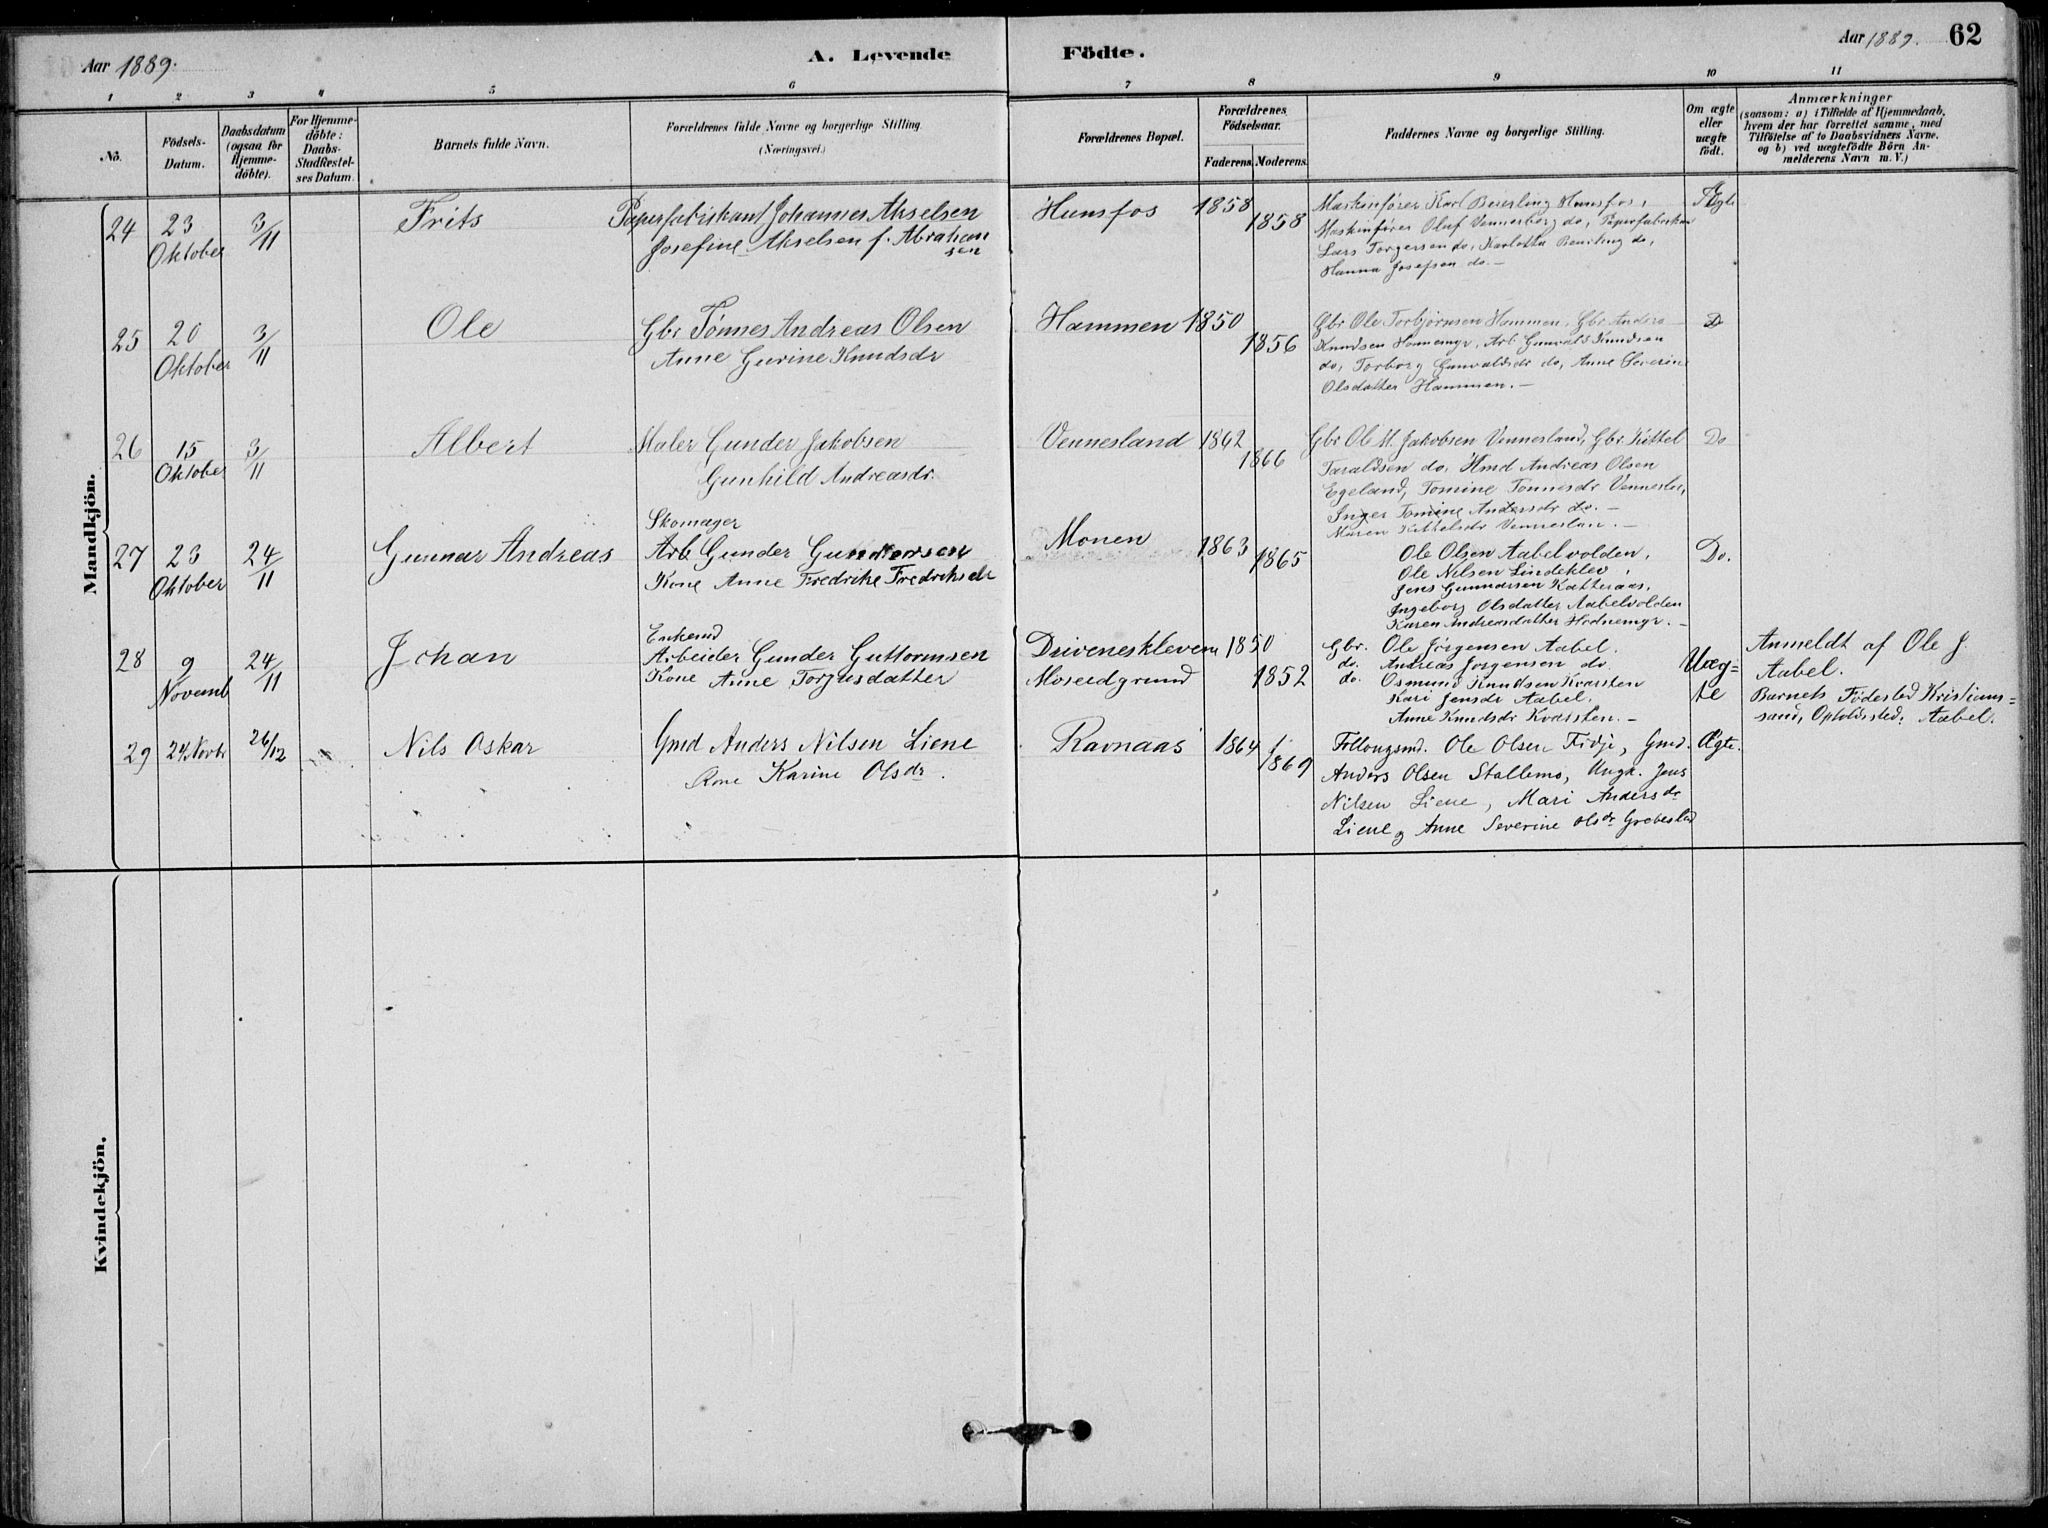 Aar 1889.
A. Levende Födte.
Aar 1889. 62
1 2 3 4 5 6 7 8 9 10 11
No.
Födsels-
Datum.
Daabsdatum
(ogsaa for
Hjemme-
döbte).
For Hjemme-
döbte:
Daabs-
Stadfæstel-
ses Datum.
Barnets fulde Navn.
Forældrenes fulde Navne og borgerlige Stilling.
(Næringsvei.)
Forældrenes Bopæl.
Forældrenes
Födselsaar.
Faderens. Moderens.
Faddernes Navne og borgerlige Stilling.
Om ægte
eller
uægte
födt.
Anmærkninger
(saasom: a) i Tilfælde af Hjemmedaab,
hvem der har forrettet samme, med
Tilföielse af to Daabsvidners Navne,
og b) ved uægtefödte Börn An-
melderens Navn m. V.)
Mandkjön.
24
23
Oktober
3/11
Frits
Papirfabrikant Johannes Akselsen
Josefine Akselsen f. Abraham
sen
Hunsfos
1858
1858
Maskinfører Karl Beierling Hunsfos,
Maskinfører Oluf Vennerborg do, Papirfabrikan
Lars Torgersen do, Karlotta Beierling do,
Hanna Josefsen do. —
Ægte
25
20
Oktober
3/11
Ole
Gbr Tønnes Andreas Olsen
Anne Gurine Knudsdr
Hammen
1850
1856
Gbr Ole Torbjørnsen Hammen, Gbr Anders
Knudsen Homemyr, Arb Gunvald Knudsen
do, Torborg Gunvaldsdr do, Anne Severine
Olsdatter Hammen. —
Do
26
15
Oktober
3/11
Albert
Maler Gunder Jakobsen
Gunhild Andreasdr.
Vennesland
1862
1866
Gbr Ole M. Jakobsen Vennesland, Gbr Kittel
Taraldsen do, Hmd Andreas Olsen
Egeland, Tomine Tønnesdr Vennesla,
Inger Tomine Andersdr do. —
Maren Kittelsdr Venneslan. —
Do
27
23
Oktober
24/11
Gunnar Andreas
Skomager
Arb Gunder Gundersen
Kone Anne Fredrike Fredriksdr
Monen
1863
1865
Ole Olsen Aabelvolden,
Ole Nilsen Lindeklev,
Jens Gunnarsen Katteraas,
Ingeborg Olsdatter Aabelvolden
Karen Andreasdatter Hodnemyr. —
Do.
28
9
Novemb
24/11
Johan
Enkemd
Arbeider Gunder Guttormsen
Kone Anne Torjusdatter
Driveneskleven
Moseidgrund
1850
1852
Gbr. Ole Jörgensen Aabel.
do. Andreas Jorgensen do.
do. Osmund Knudsen Kvarsten
Kari Jensdr Aabel.
Anne Knudsdr Kvarsten. —
Uæg=
te
Anmeldt af Ole J.
Aabel.
Barnets Födested Kristians=
sand, Opholdssted: Aabel.
29
24. Novbr
26/12
Nils Oskar
Gmd Anders Nilsen Liene
Kone Karine Olsdr.
Ravnaas
1864
1869
Ole Olsen Fidje, Gmd.
Anders Olsen Stallemo, Ungk. Jens
Nilsen Liene, Mari Andersdr
Liene og Anne Severine Olsdr Grebested
Ægte.
Kvindekjön.